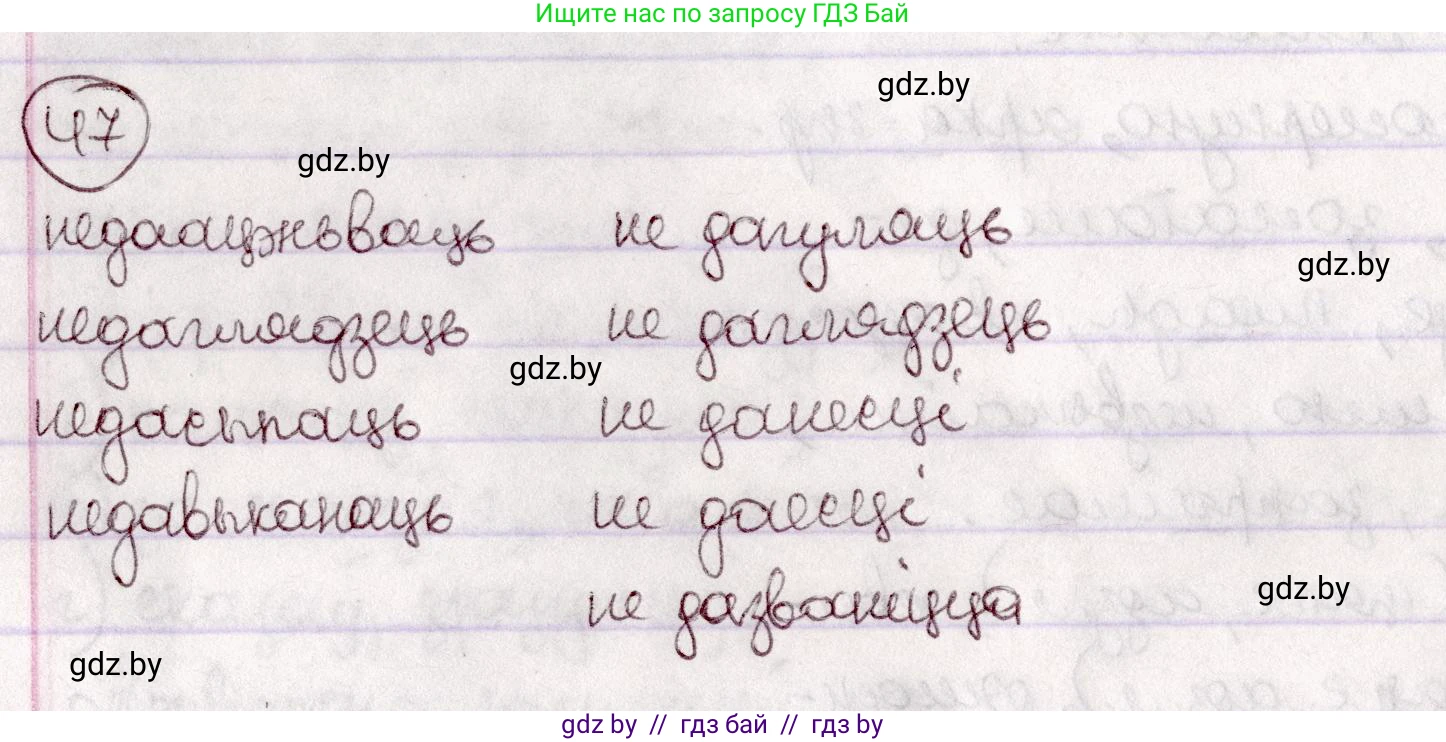 Ищите нас по запросу ГДЗ Бай
gdz.by
47
gdz.by
недаацэньваць не дагуляць
gdz.by
недаглядзець не даглядзець
gdz.by
недасыпаць не данесці
недавыканаць не даесці
не дазваніцца
gdz.by
gdz.by
gdz by // гдз бай // гдз by